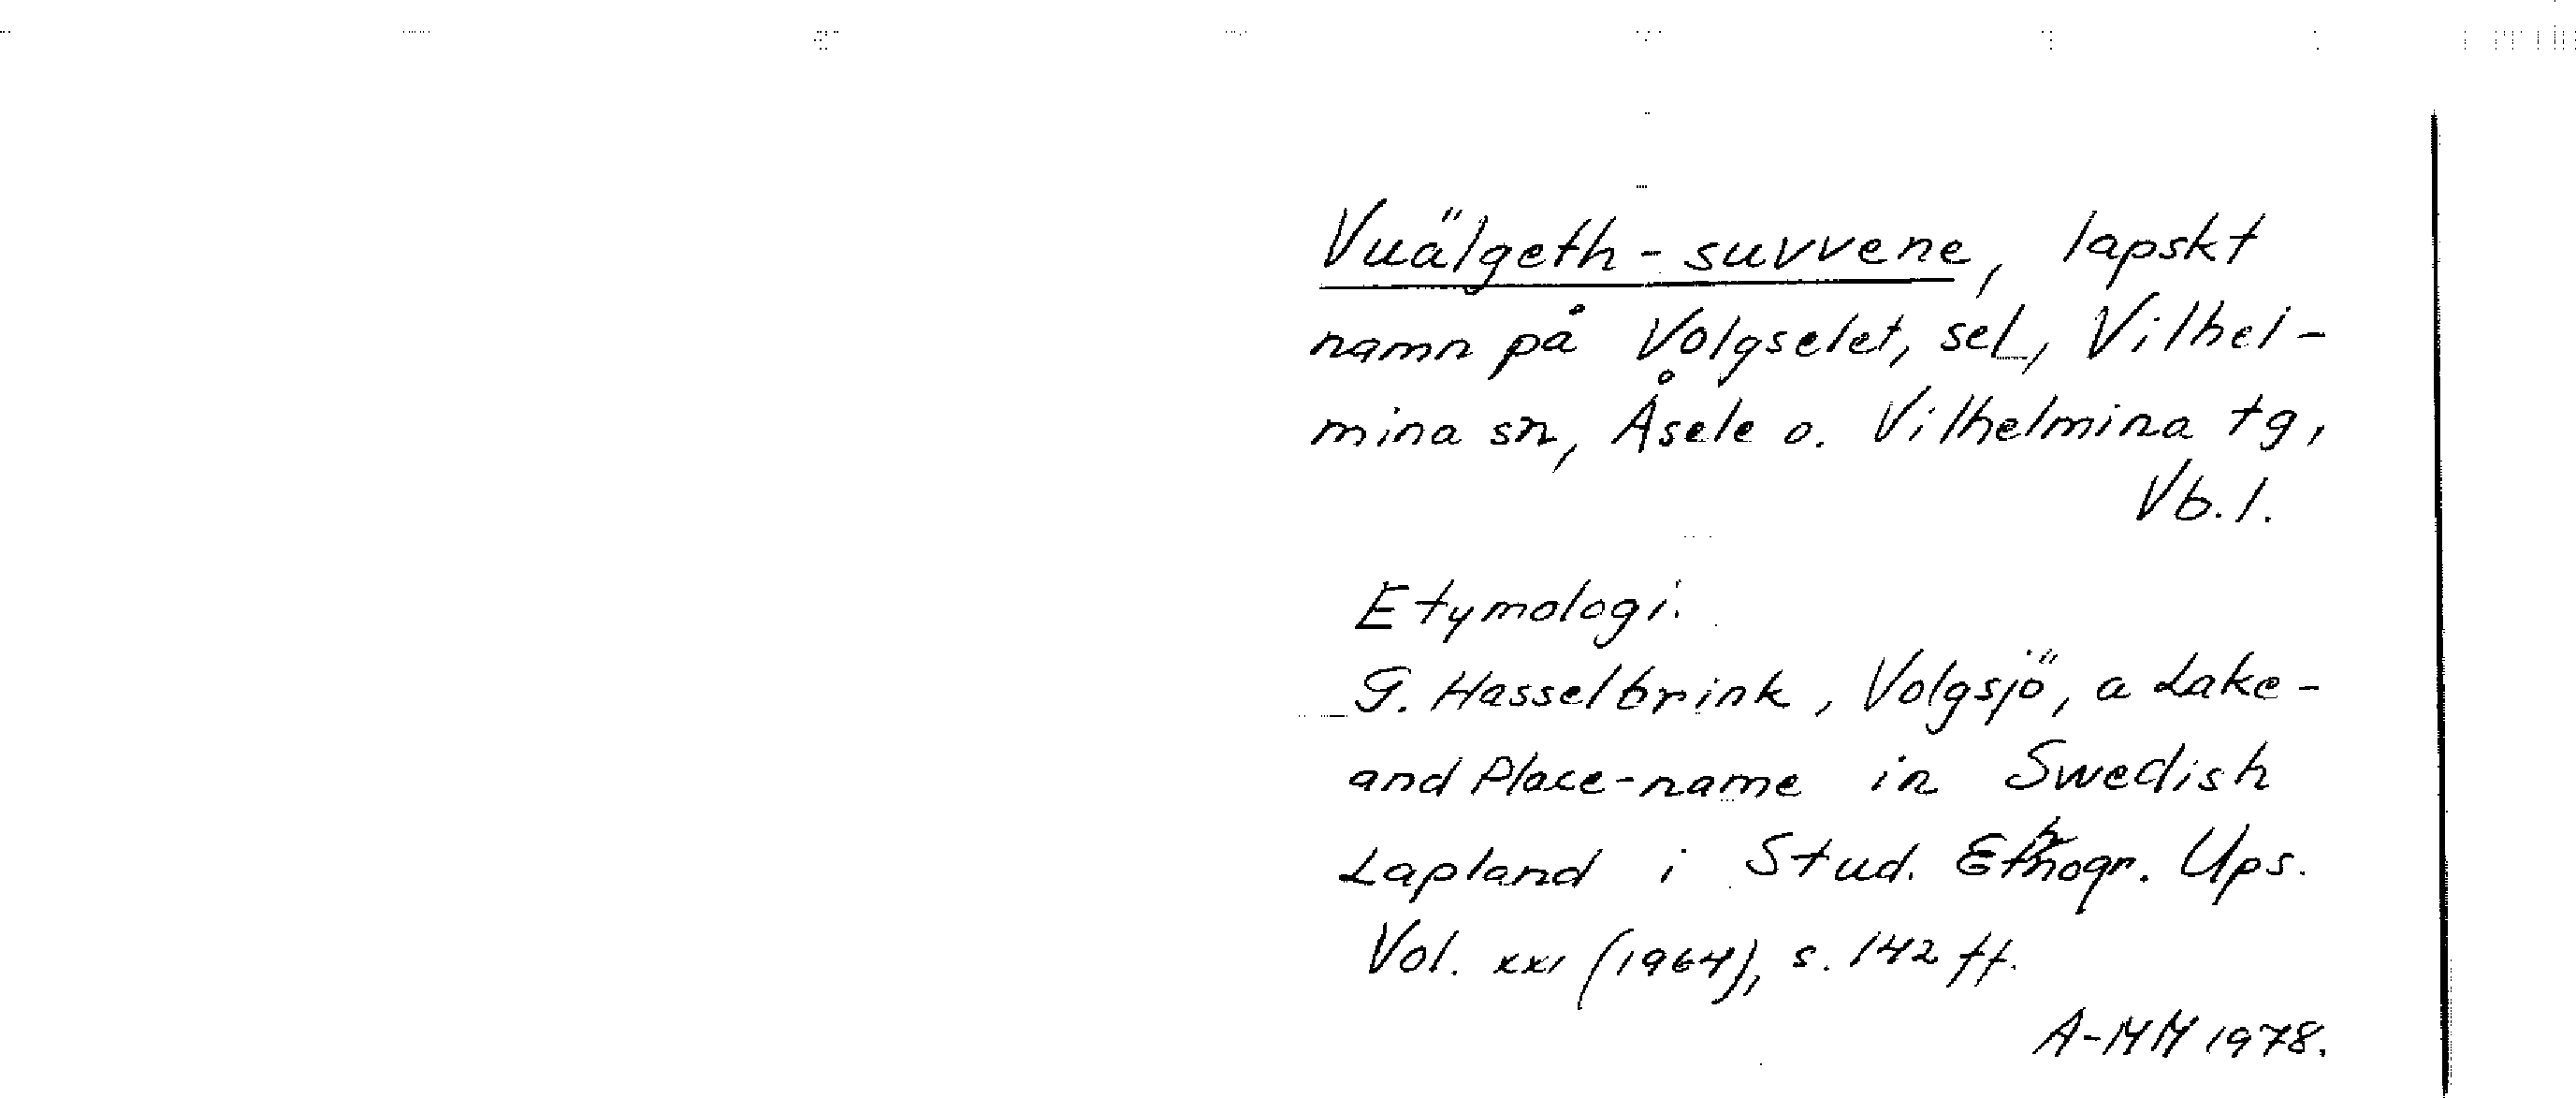 Vuälgeth-suvvene, lapskt
namn på Volgselet, sel, Vilhel-
mina sn, Åsele o. Vilhelmina tg,
Vb.l.
Etymologi.
G. Hasselbrink, Volgsjö, a Lake-
and Place-name in Swedish
Lapland i Stud. Ethnogr. Ups.
Vol. XXI (1964), s. 142 ff.
A-MM 1978.